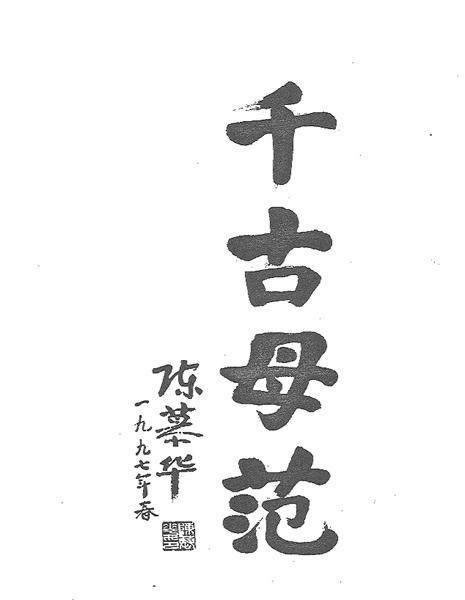 千古母范
陈慕华
一九九七年春